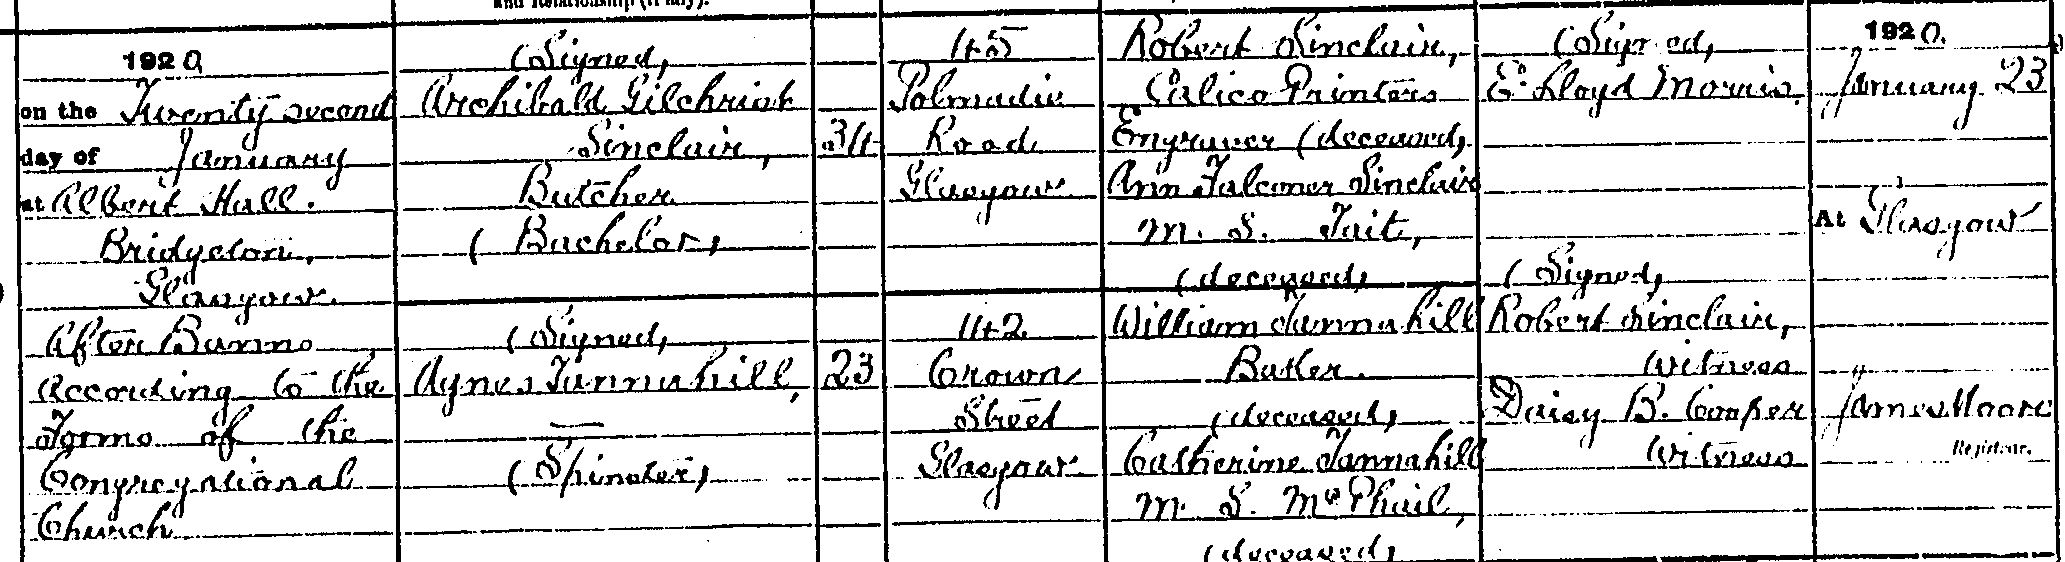 and Relationship (if any).
1920
on the Twenty second
day of January
at Albert Hall.
Bridgeton,
Glasgow.
After Banns
according to the
Forms of the
Congregational
Church
(Signed)
Archibald Gilchrist
Sinclair,
Butcher
(Bachelor)
34
45
Polmadie
Road
Glasgow
Robert Sinclair,
Calico Printers
Engraver (deceased)
Ann Falconer Sinclair
M. S. Tait,
(deceased)
(Signed)
E. Lloyd Morris.
(Signed)
Robert Sinclair,
Witness
Daisy B. Cooper
Witness
(Signed)
Agnes Tannahill,
—
(Spinster)
23
142
Crown
Street
Glasgow
William Tannahill
Baker.
(deceased)
Catherine Tannahill
M. S. McPhail,
(deceased)
1920.
January 23
At Glasgow
James Moore
Registrar.